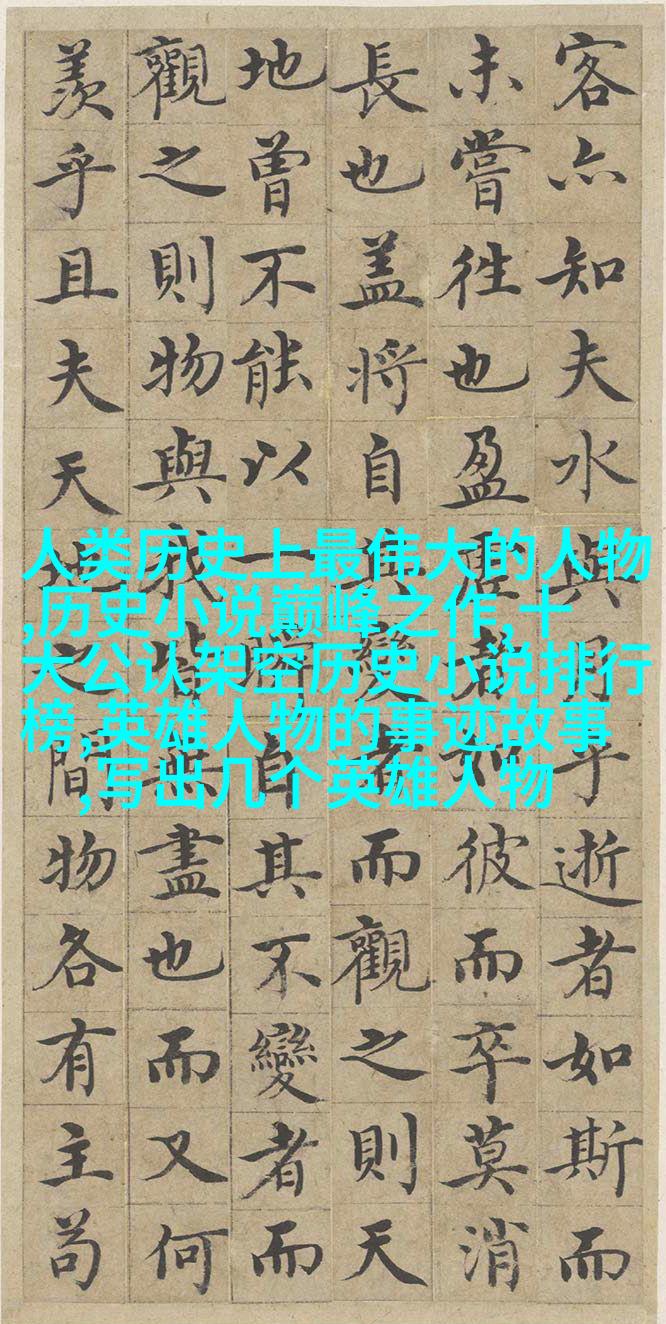 客亦知夫水與月乎逝者如斯而
未嘗往也盈虛者如彼而卒莫消
長也盖將自其變者而觀之則天
地曾不能以一瞬自其不變者而
觀之則物與我皆無盡也而又何
羨乎且夫天地之間物各有主苟
人类历史上最伟大的人物
,历史小说巅峰之作,十
大公认架空历史小说排行
榜,英雄人物的事迹故事
,写出几个英雄人物